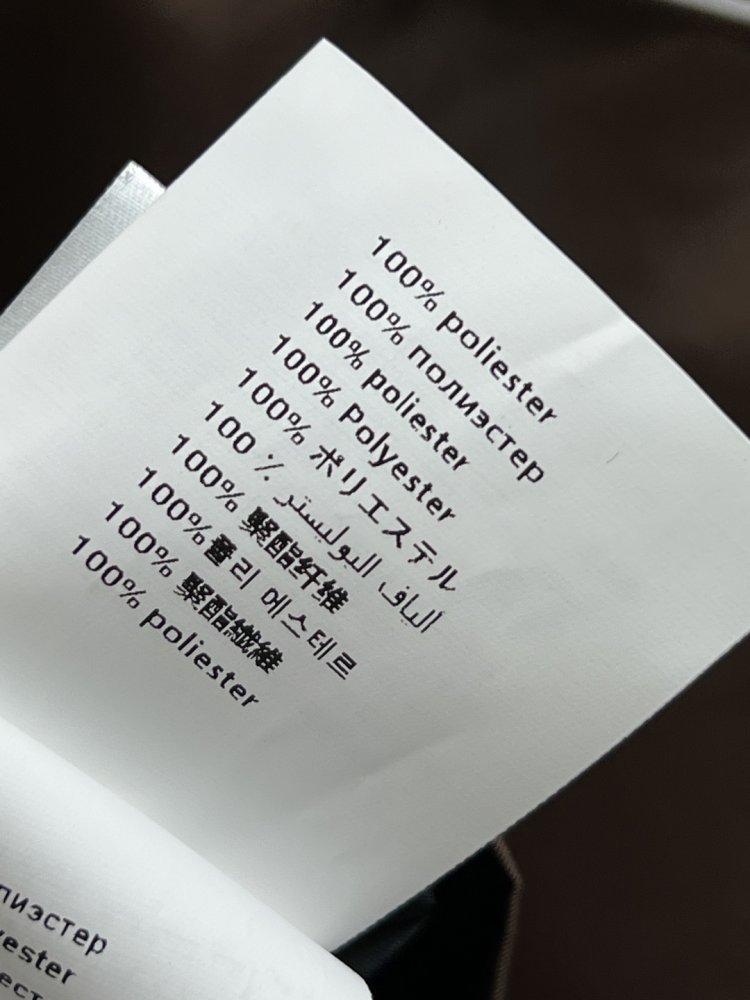 100% poliester
100% полиэстер
100% poliester
100% Polyester
100% ポリエステル
100 ٪ ألياف البوليستر
100% 聚酯纤维
100% 폴리 에스테르
100% 聚酯纖維
100% poliester